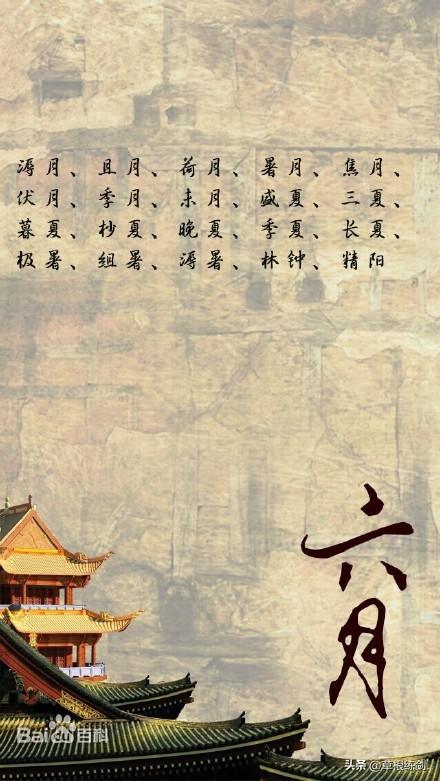 溽月、且月、荷月、暑月、焦月、
伏月、季月、未月、盛夏、三夏、
暮夏、杪夏、晚夏、季夏、长夏、
极暑、组暑、溽暑、林钟、精阳
六月
Bai百科
头条@草根练剑